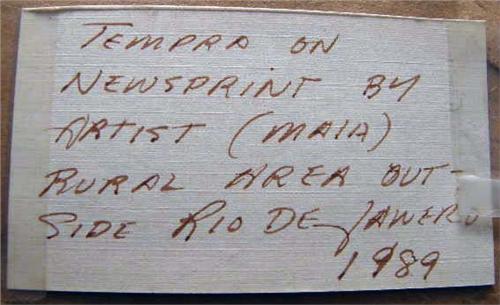 TEMPRA ON
NEWSPRINT BY
ARTIST (MAIA)
RURAL AREA OUT-
SIDE RIO DE JANERO
1989